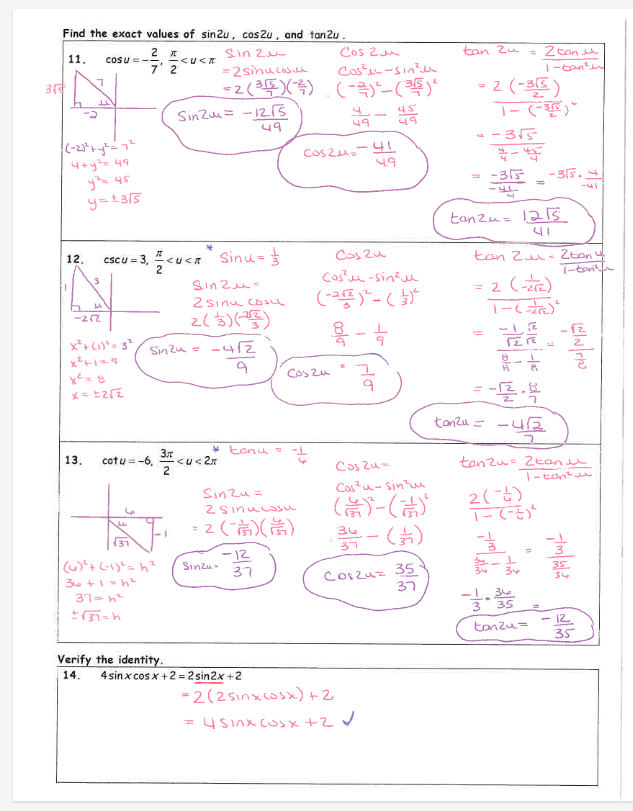 Find the exact values of sin2u, cos2u, and tan2u.
11. cosu = -2/7, π/2 < u < π
3√5
7
u
-2
(-2)² + y² = 7²
4 + y² = 49
y² = 45
y = ±3√5
Sin 2u
= 2 sinu cosu
= 2(3√5/7)(-2/7)
Sin2u = -12√5/49
Cos 2u
Cos²u - sin²u
(-2/7)² - (3√5/7)²
4/49 - 45/49
Cos2u = -41/49
tan 2u = 2tanu/1-tan²u
= 2(-3√5/2)/1-(-3√5/2)²
= -3√5/4/4 - 45/4
= -3√5/-41/4 = -3√5 · 4/-41
tan2u = 12√5/41
12. cscu = 3, π/2 < u < π
* Sinu = 1/3
1
3
u
-2√2
x² + (1)² = 3²
x² + 1 = 9
x² = 8
x = ±2√2
Sin2u =
2 sinu cosu
2(1/3)(-2√2/3)
Sin2u = -4√2/9
Cos2u
Cos²u - sin²u
(-2√2/3)² - (1/3)²
8/9 - 1/9
Cos2u = 7/9
tan 2u = 2tanu/1-tan²u
= 2(1/-2√2)/1-(1/-2√2)²
= -1/√2 √2/√2/8/8 - 1/8 = -√2/2/7/8
= -√2/2 · 8/7
tan2u = -4√2/7
13. cotu = -6, 3π/2 < u < 2π
* tanu = -1/6
6
u
-1
√37
(6)² + (-1)² = h²
36 + 1 = h²
37 = h²
±√37 = h
Sin2u =
2 sinu cosu
= 2(-1/√37)(6/√37)
Sin2u = -12/37
Cos2u =
Cos²u - sin²u
(6/√37)² - (-1/√37)²
36/37 - (1/37)
Cos2u = 35/37
tan2u = 2tanu/1-tan²u
2(-1/6)/1-(-1/6)²
-1/3/36/36 - 1/36 = -1/3/35/36
-1/3 · 36/35 =
tan2u = -12/35
Verify the identity.
14. 4sinxcosx + 2 = 2sin2x + 2
= 2(2sinxcosx) + 2
= 4sinxcosx + 2 ✓